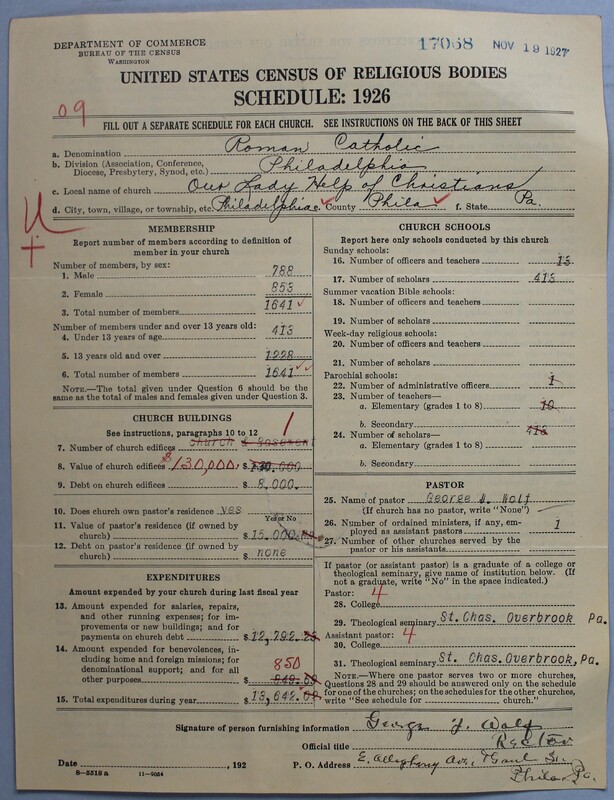 DEPARTMENT OF COMMERCE
BUREAU OF THE CENSUS
WASHINGTON
17068 NOV 19 1927
UNITED STATES CENSUS OF RELIGIOUS BODIES
SCHEDULE: 1926
09
FILL OUT A SEPARATE SCHEDULE FOR EACH CHURCH. SEE INSTRUCTIONS ON THE BACK OF THIS SHEET
a. Denomination Roman Catholic
b. Division (Association, Conference, Diocese, Presbytery, Synod, etc.) Philadelphia
c. Local name of church Our Lady Help of Christians
d. City, town, village, or township, etc. Philadelphia e. County Phila f. State Pa.
U
+
MEMBERSHIP
Report number of members according to definition of
member in your church
Number of members, by sex:
1. Male 788
2. Female 853
3. Total number of members 1641
Number of members under and over 13 years old:
4. Under 13 years of age 413
5. 13 years old and over 1228
6. Total number of members 1641
NOTE.—The total given under Question 6 should be the
same as the total of males and females given under Question 3.
CHURCH BUILDINGS
See instructions, paragraphs 10 to 12
1
7. Number of church edifices church & basement
8. Value of church edifices $130,000. $ 130.000
9. Debt on church edifices $ 8,000.
10. Does church own pastor's residence yes
Yes or No
11. Value of pastor's residence (if owned by
church) $ 15.000
12. Debt on pastor's residence (if owned by
church) $ none
EXPENDITURES
Amount expended by your church during last fiscal year
13. Amount expended for salaries, repairs,
and other running expenses; for im-
provements or new buildings; and for
payments on church debt $ 12,792.
14. Amount expended for benevolences, in-
cluding home and foreign missions; for
denominational support; and for all
other purposes 850 $ 849.
15. Total expenditures during year $ 13,642.
CHURCH SCHOOLS
Report here only schools conducted by this church
Sunday schools:
16. Number of officers and teachers 13
17. Number of scholars 413
Summer vacation Bible schools:
18. Number of officers and teachers
19. Number of scholars
Week-day religious schools:
20. Number of officers and teachers
21. Number of scholars
Parochial schools:
22. Number of administrative officers 1
23. Number of teachers—
a. Elementary (grades 1 to 8) 10
b. Secondary
24. Number of scholars— 413
a. Elementary (grades 1 to 8)
b. Secondary
PASTOR
25. Name of pastor George Wolf
(If church has no pastor, write "None")
26. Number of ordained ministers, if any, em-
ployed as assistant pastors 1
27. Number of other churches served by the
pastor or his assistants
If pastor (or assistant pastor) is a graduate of a college or
theological seminary, give name of institution below. (If
not a graduate, write "No" in the space indicated.)
Pastor: 4
28. College
29. Theological seminary St. Chas. Overbrook Pa.
Assistant pastor: 4
30. College
31. Theological seminary St. Chas. Overbrook, Pa.
NOTE.—Where one pastor serves two or more churches,
Questions 28 and 29 should be answered only on the schedule
for one of the churches; on the schedules for the other churches,
write "See schedule for church."
Signature of person furnishing information George Wolf
Official title Rector
Date , 192 P. O. Address E. Allegheny Ave., & Gaul St.
Phila. Pa.
8—5518 a 11—9054